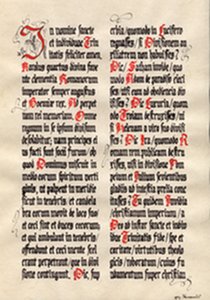 In nomine sancte
et individue Trini
tatis feliciter amen
Karolus quartus divina fave
nte clementia Romanorum
imperator semper augustus
et Boemie rex. Ad perpet
uam rei memoriam. Omne
regnum in se ipsum divisum
desolabitur; nam principes ei
us facti sunt socii furum; ob
quod Dominus miscuit in
medio eorum spiritum verti
ginis, ut palpent in meridie
sicut in tenebris, et candela
bra eorum movit de loco suo
ut ceci sint et duces cecorum
et qui ambulant in tenebris
offendunt et ceci mente scel
era perpetrant, que in divi
sione contingunt. Dic, sup
erbia, quomodo in Lucifero
regnasses, si Divisionem au
xiliatricem non habuisses?
Dic, Sathan invide, quo
modo Adam de paradiso ejeci
sses nisi eum ab obediencia di
visisses? Dic, luxuria, quom
odo Troiam destruxisses, ni
si Helenam a viro suo divisi
sses? Dic Ira, quomodo R
omanam rem publicam destru
xisses, nisi in divisione Pom
peium et Julium sevientibus
gladiis ad intestina prelia conc
itasses? Tu quidem Invidia
christianum imperium, a
Deo ad instar sancte et indivi
due Trinitatis fide, spe et
caritate, virtutibus theologi
cis, roboratum, cuius fu
ndamentum super christian